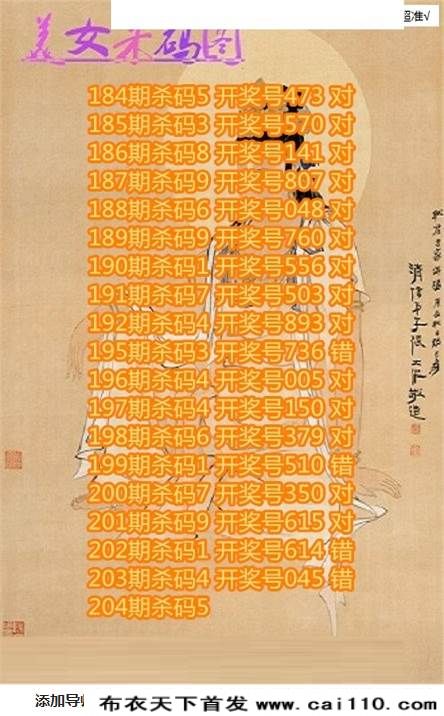 超准√
美女杀码图
184期杀码5 开奖号473 对
185期杀码3 开奖号570 对
186期杀码8 开奖号141 对
187期杀码9 开奖号807 对
188期杀码6 开奖号048 对
189期杀码9 开奖号760 对
190期杀码1 开奖号556 对
191期杀码7 开奖号503 对
192期杀码4 开奖号893 对
195期杀码3 开奖号736 错
196期杀码4 开奖号005 对
197期杀码4 开奖号150 对
198期杀码6 开奖号379 对
199期杀码1 开奖号510 错
200期杀码7 开奖号350 对
201期杀码9 开奖号615 对
202期杀码1 开奖号614 错
203期杀码4 开奖号045 错
204期杀码5
添加导
布衣天下首发 www.cai110.com